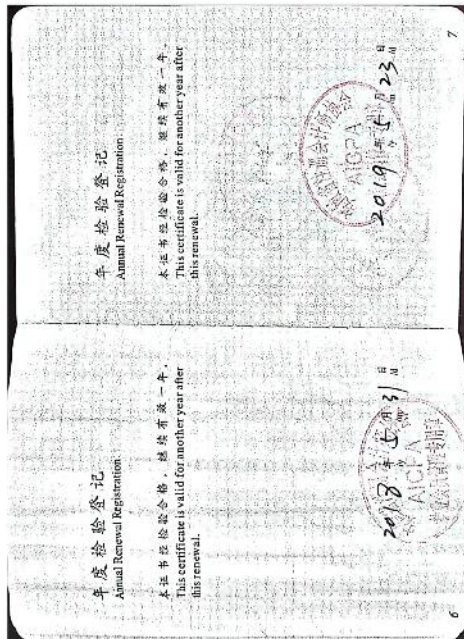 年度检验登记
Annual Renewal Registration
本证书经检验合格，继续有效一年。
This certificate is valid for another year after
this renewal.
2018 年 5 月 31 日
AICPA
6
年度检验登记
Annual Renewal Registration
本证书经检验合格，继续有效一年。
This certificate is valid for another year after
this renewal.
AICPA
2019 年 5 月 23 日
7